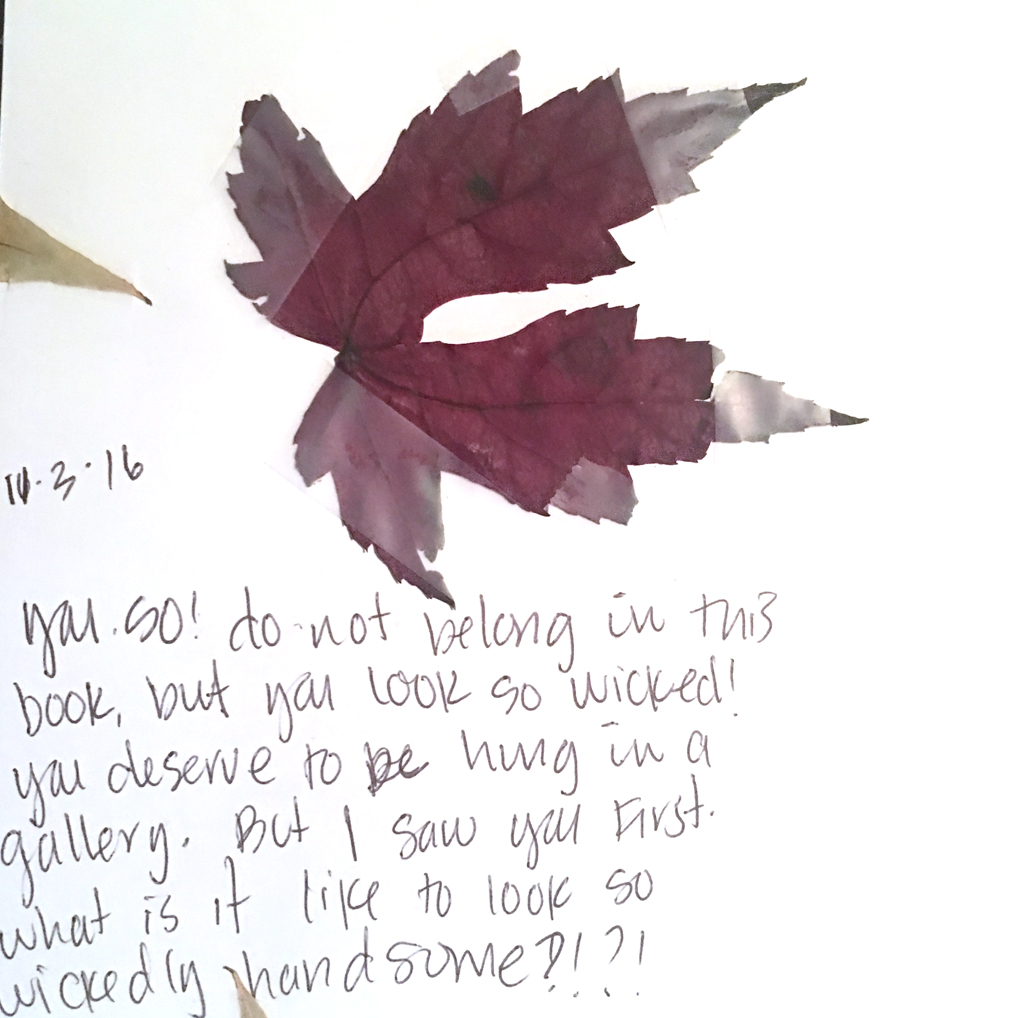 10.3.16
you. so! do not belong in this
book, but you look so wicked!
you deserve to be hung in a
gallery. But I saw you first.
what is it like to look so
wickedly handsome?!?!